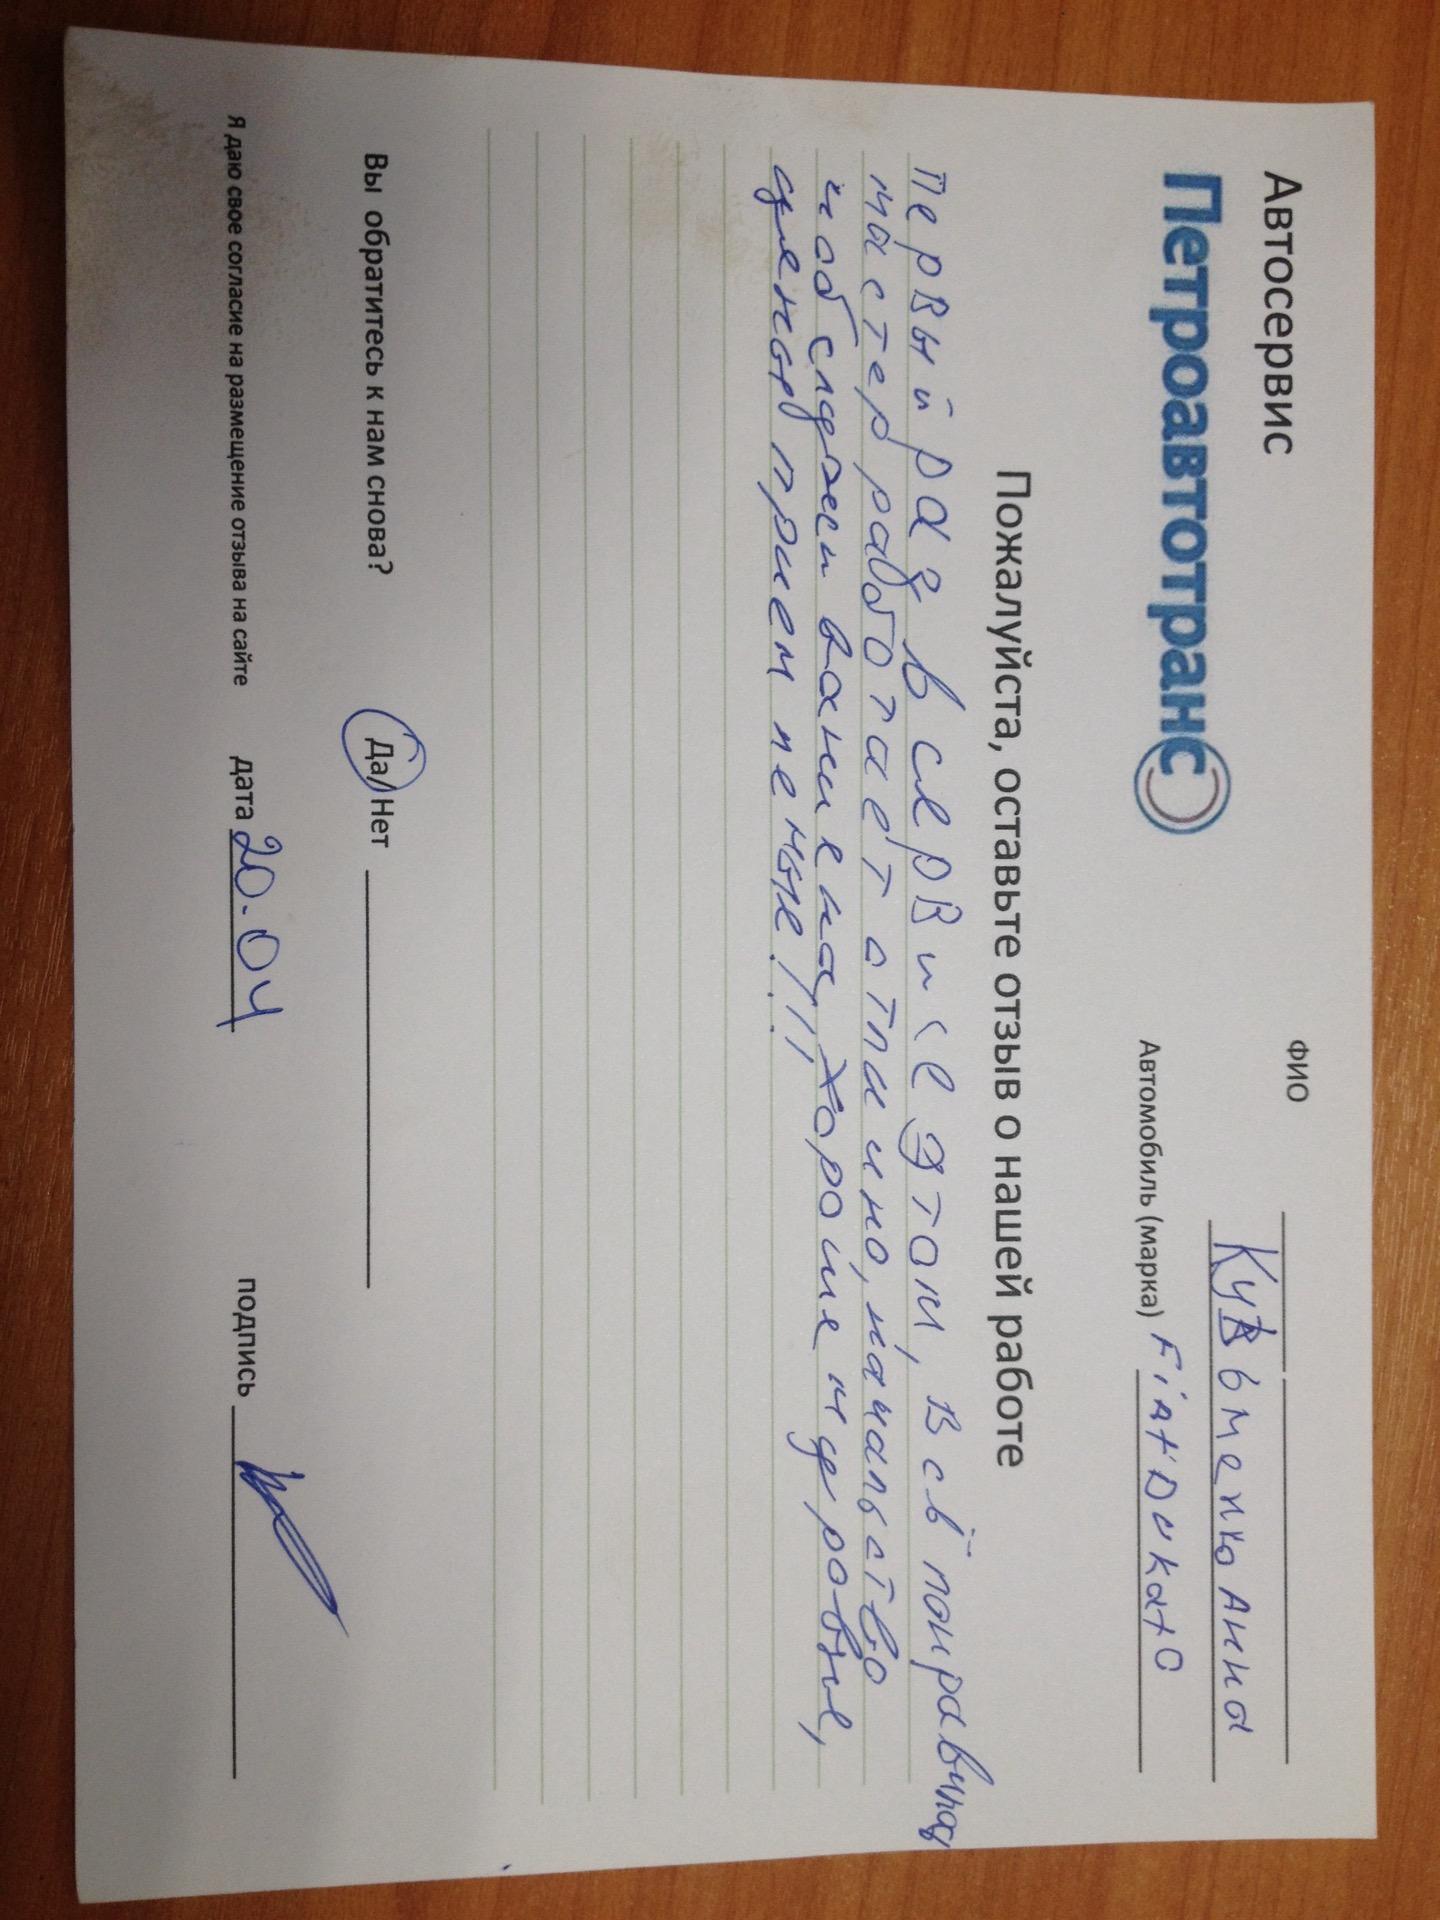 Автосервис
Петроавтотранс
ФИО
Кузьменко Анна
Автомобиль (марка) Fiat Dukato
Пожалуйста, оставьте отзыв о нашей работе
Первый раз в сервисе этом, всё понравилось
мастер работает отлично, начальство
и обслуживание на хорошие и
цены приемлемые!!!
Вы обратитесь к нам снова? Да/Нет
Я даю свое согласие на размещение отзыва на сайте дата 20.04 подпись